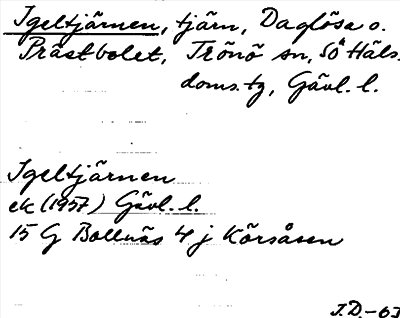 Igeltjärnen, tjärn, Daglösa o.
Prästbolet, Trönö sn, Sö Häls.
doms.tg, Gävl. l.
Igeltjärnen
ek (1957) Gävl. l.
15 G Bollnäs 4 j Körsåsen
J.D.-63